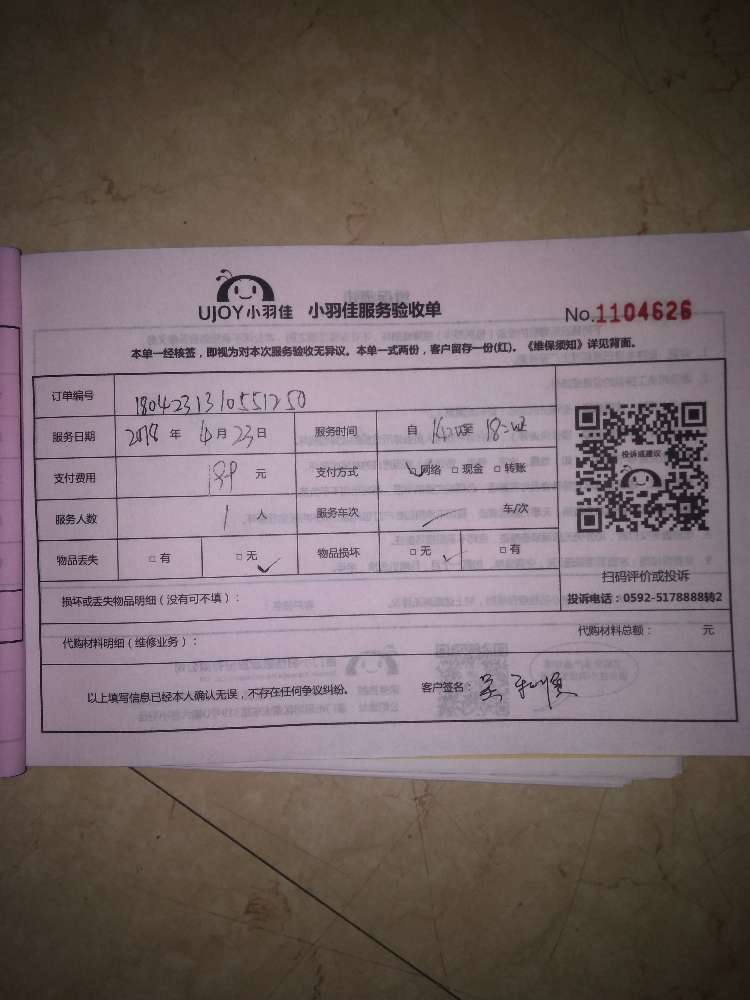 UJOY小羽佳 小羽佳服务验收单 No.1104626
本单一经核签，即视为对本次服务验收无异议。本单一式两份，客户留存一份(红)。《维保须知》详见背面。
订单编号 1804231310551250
服务日期 2018 年 4 月 23 日 服务时间 自 至
支付费用 189 元 支付方式 ☑网络 □现金 □转账
服务人数 1 人 服务车次 / 车/次
物品丢失 □有 □无 ✓ 物品损坏 □无 ✓ □有
投诉或建议
扫码评价或投诉
投诉电话：0592-5178888转2
损坏或丢失物品明细（没有可不填）：
代购材料明细（维修业务）： 代购材料总额： 元
以上填写信息已经本人确认无误，不存在任何争议纠纷。 客户签名：